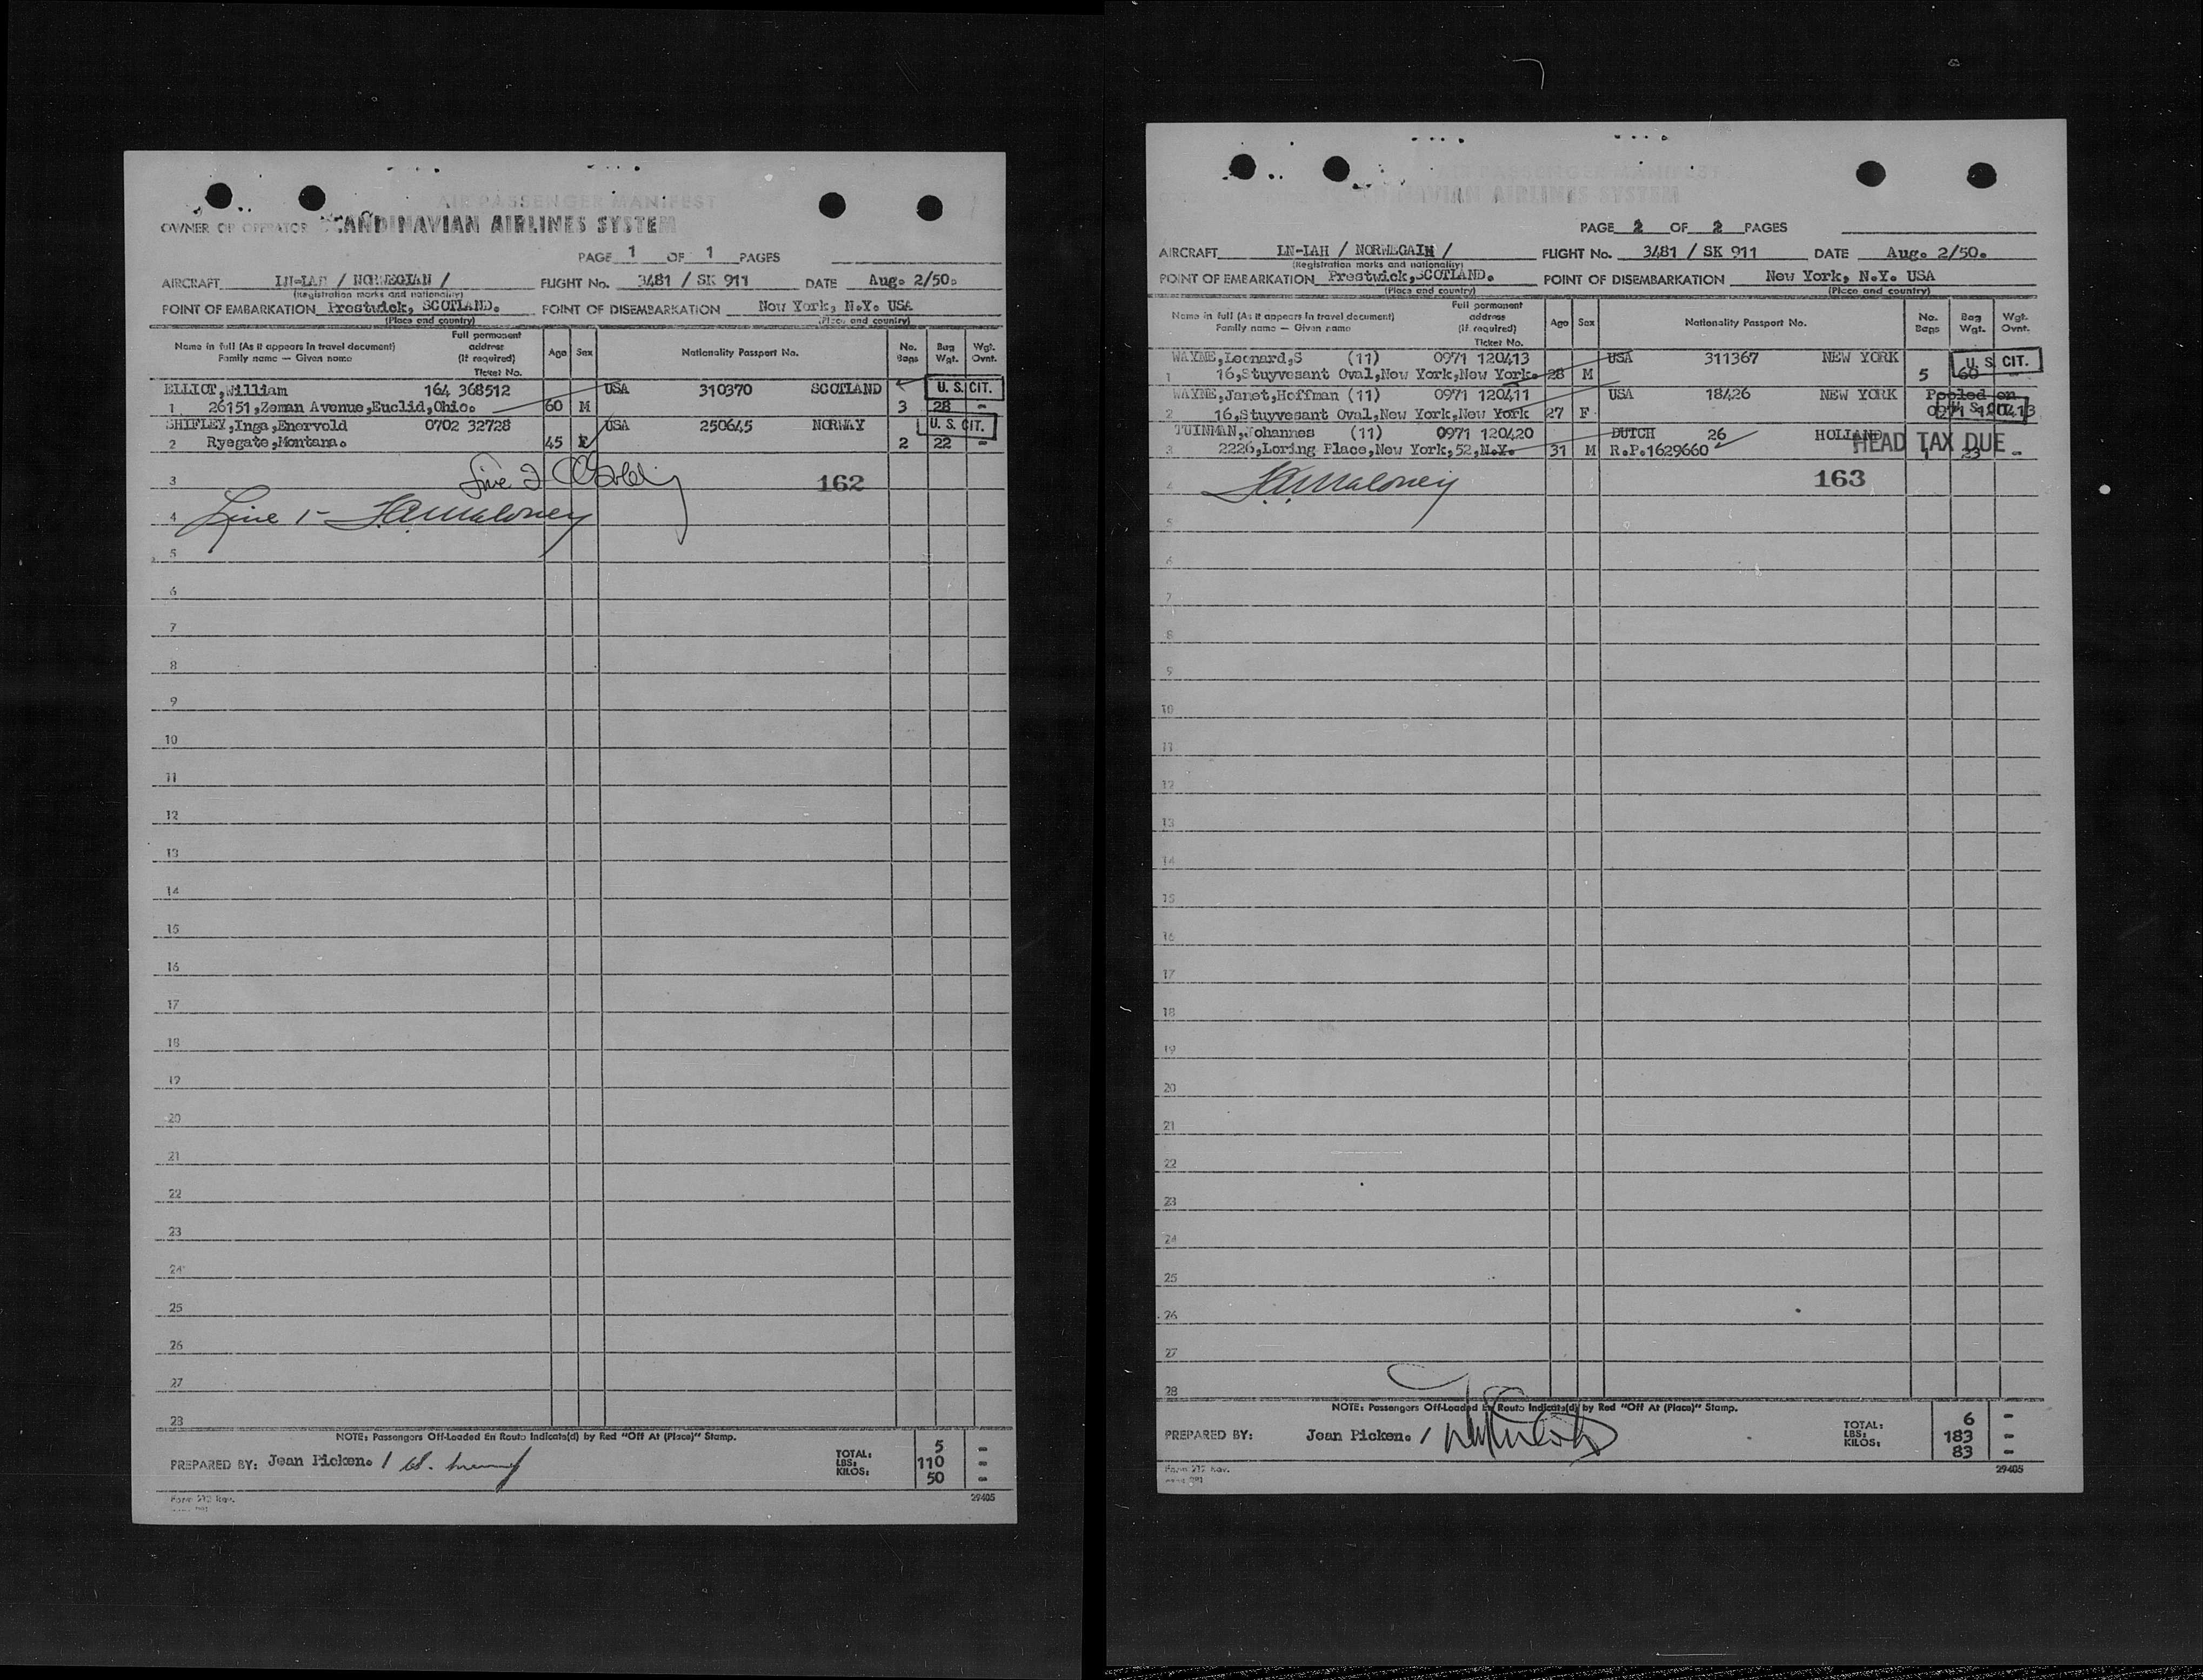 AIR PASSENGER MANIFEST
OWNER OR OPERATOR SCANDINAVIAN AIRLINES SYSTEM
PAGE 1 OF 1 PAGES
AIRCRAFT LN-IAH / NORWEGIAN / FLIGHT No. 3481 / SK 911 DATE Aug. 2/50.
(Registration marks and nationality)
POINT OF EMBARKATION Prestwick, SCOTLAND. POINT OF DISEMBARKATION New York, N.Y. USA
(Place and country) (Place and country)
Name in full (As it appears in travel document) Family name — Given name Full permanent address (If required) Ticket No. Age Sex Nationality Passport No. No. Bags Bag Wgt. Wgt. Ovnt.
ELLIOT,William 164 368512 USA 310370 SCOTLAND U. S. CIT.
1 26151,Zeman Avenue,Euclid,Ohio. 60 M 3 28 -
SHIFLEY,Inga,Enervold 0702 32728 USA 250645 NORWAY U. S. CIT.
2 Ryegate,Montana. 45 F 2 22 -
3 Line 2 162
4 Line 1- Maloney
5
6
7
8
9
10
11
12
13
14
15
16
17
18
19
20
21
22
23
24
25
26
27
28
NOTE: Passengers Off-Loaded En Route Indicate(d) by Red "Off At (Place)" Stamp.
PREPARED BY: Jean Picken. /
TOTAL: 5 -
LBS: 110 -
KILOS: 50 -
Form 212 Rev. 29405
AIR PASSENGER MANIFEST
SCANDINAVIAN AIRLINES SYSTEM
PAGE 2 OF 2 PAGES
AIRCRAFT LN-IAH / NORWEGAIN / FLIGHT No. 3481 / SK 911 DATE Aug. 2/50.
(Registration marks and nationality)
POINT OF EMBARKATION Prestwick,SCOTLAND. POINT OF DISEMBARKATION New York, N.Y. USA
(Place and country) (Place and country)
Name in full (As it appears in travel document) Family name — Given name Full permanent address (If required) Ticket No. Age Sex Nationality Passport No. No. Bags Bag Wgt. Wgt. Ovnt.
WAYNE,Leonard,S (11) 0971 120413 USA 311367 NEW YORK U. S. CIT.
1 16,Stuyvesant Oval,New York,New York. 28 M 5 60 -
WAYNE,Janet,Hoffman (11) 0971 120411 USA 18426 NEW YORK Pooled on
2 16,Stuyvesant Oval,New York,New York 27 F 0971 120413 U. S. CIT.
TUINMAN,Johannes (11) 0971 120420 DUTCH 26 HOLLAND HEAD TAX DUE
3 2226,Loring Place,New York,52,N.Y. 31 M R.P.1629660 1 23 -
4 Maloney 163
5
6
7
8
9
10
11
12
13
14
15
16
17
18
19
20
21
22
23
24
25
26
27
28
NOTE: Passengers Off-Loaded En Route Indicate(d) by Red "Off At (Place)" Stamp.
PREPARED BY: Jean Picken. /
TOTAL: 6 -
LBS: 183 -
KILOS: 83 -
Form 212 Rev. 29405